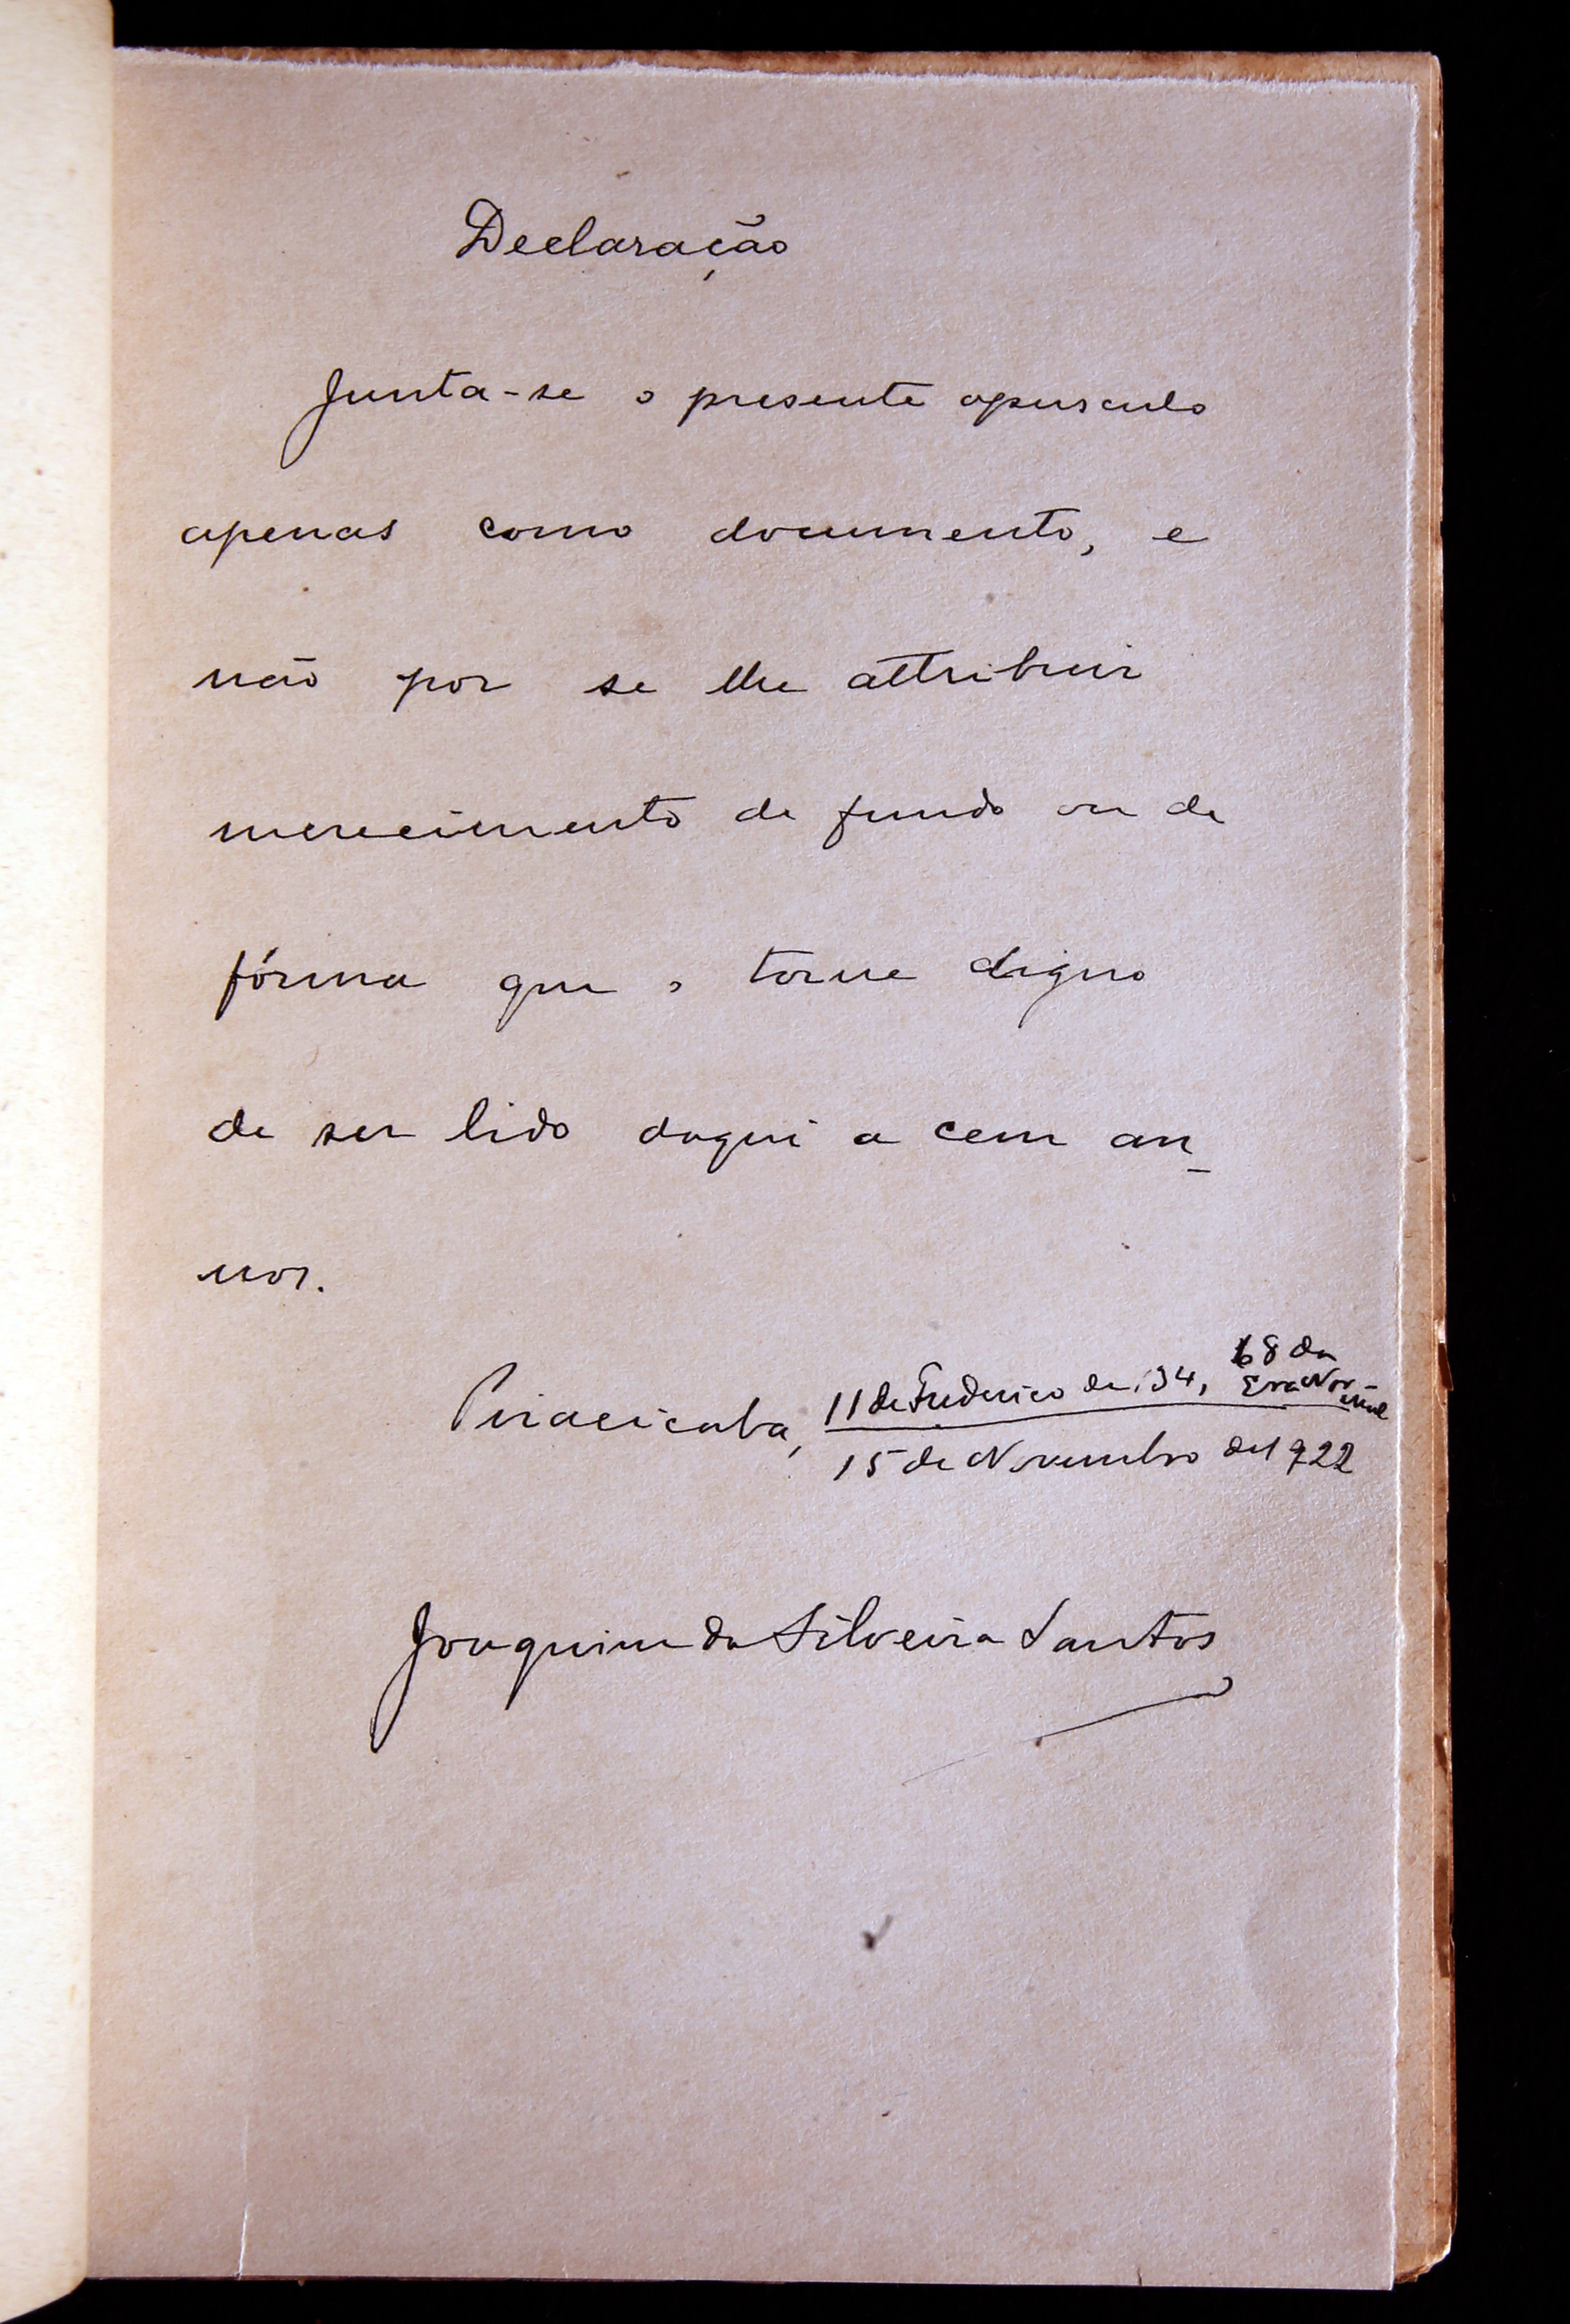 Declaração
Junta-se o presente opusculo
apenas como documento, e
não por se lhe attribuir
merecimento de fundo ou de
fórma que o torne digno
de ser lido daqui a cem an-
nos.
Piracicaba, 11 de Frederico de 134, 68 da
Era Nor-
mal
15 de Novembro de 1922
Joaquim da Silveira Santos